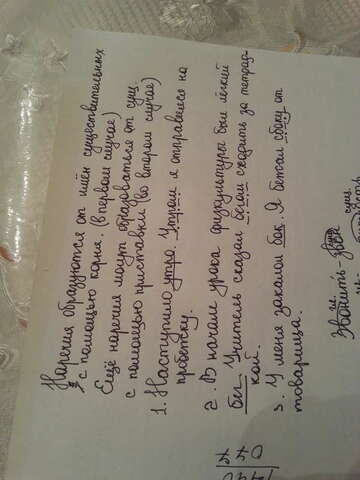 Наречия образуются от имён существительных
с помощью корня. (в первом случае)
Ещё наречия могут образоваться от сущ.
с помощью приставки (во втором случае)
1. Наступило утро. Утром я отправляюсь на
пробежку.
2. В начале урока физкультуры был лёгкий
бег. Учитель сказал бегом сходить за тетрад-
кой.
3. У меня заколол бок. Я бежал сбоку от
товарища.
гл. сущ.
Звонить-